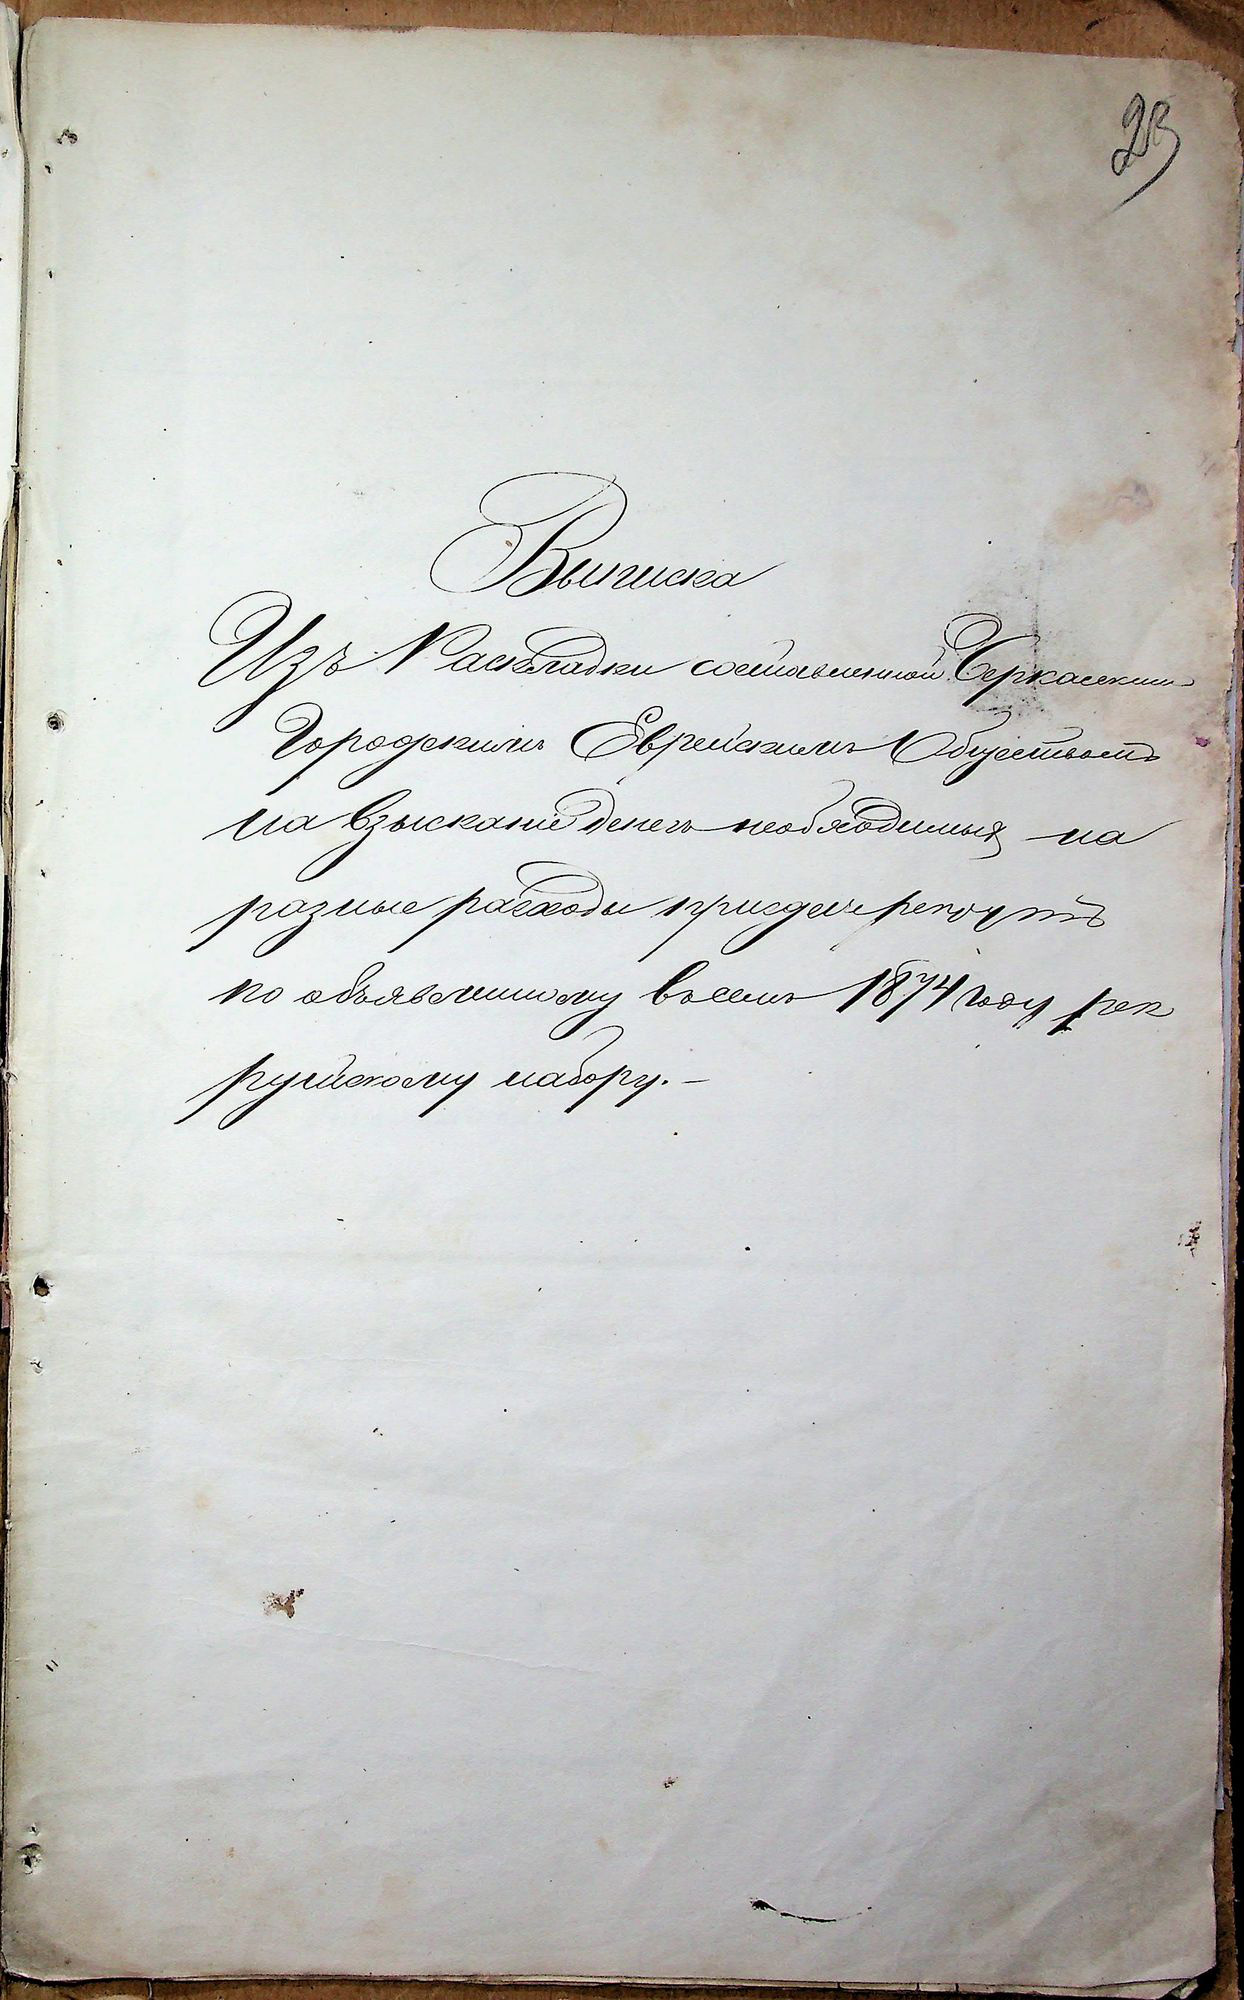 23
Выписка
Изъ Раскладки составленной Черкаскимъ
Городскимъ Еврейскимъ Обществомъ
на взысканіе денегъ необходимыя на
разные расходы присдаче рекрутъ
по объявленному всемъ 1874 году рек
рутскому набору. —